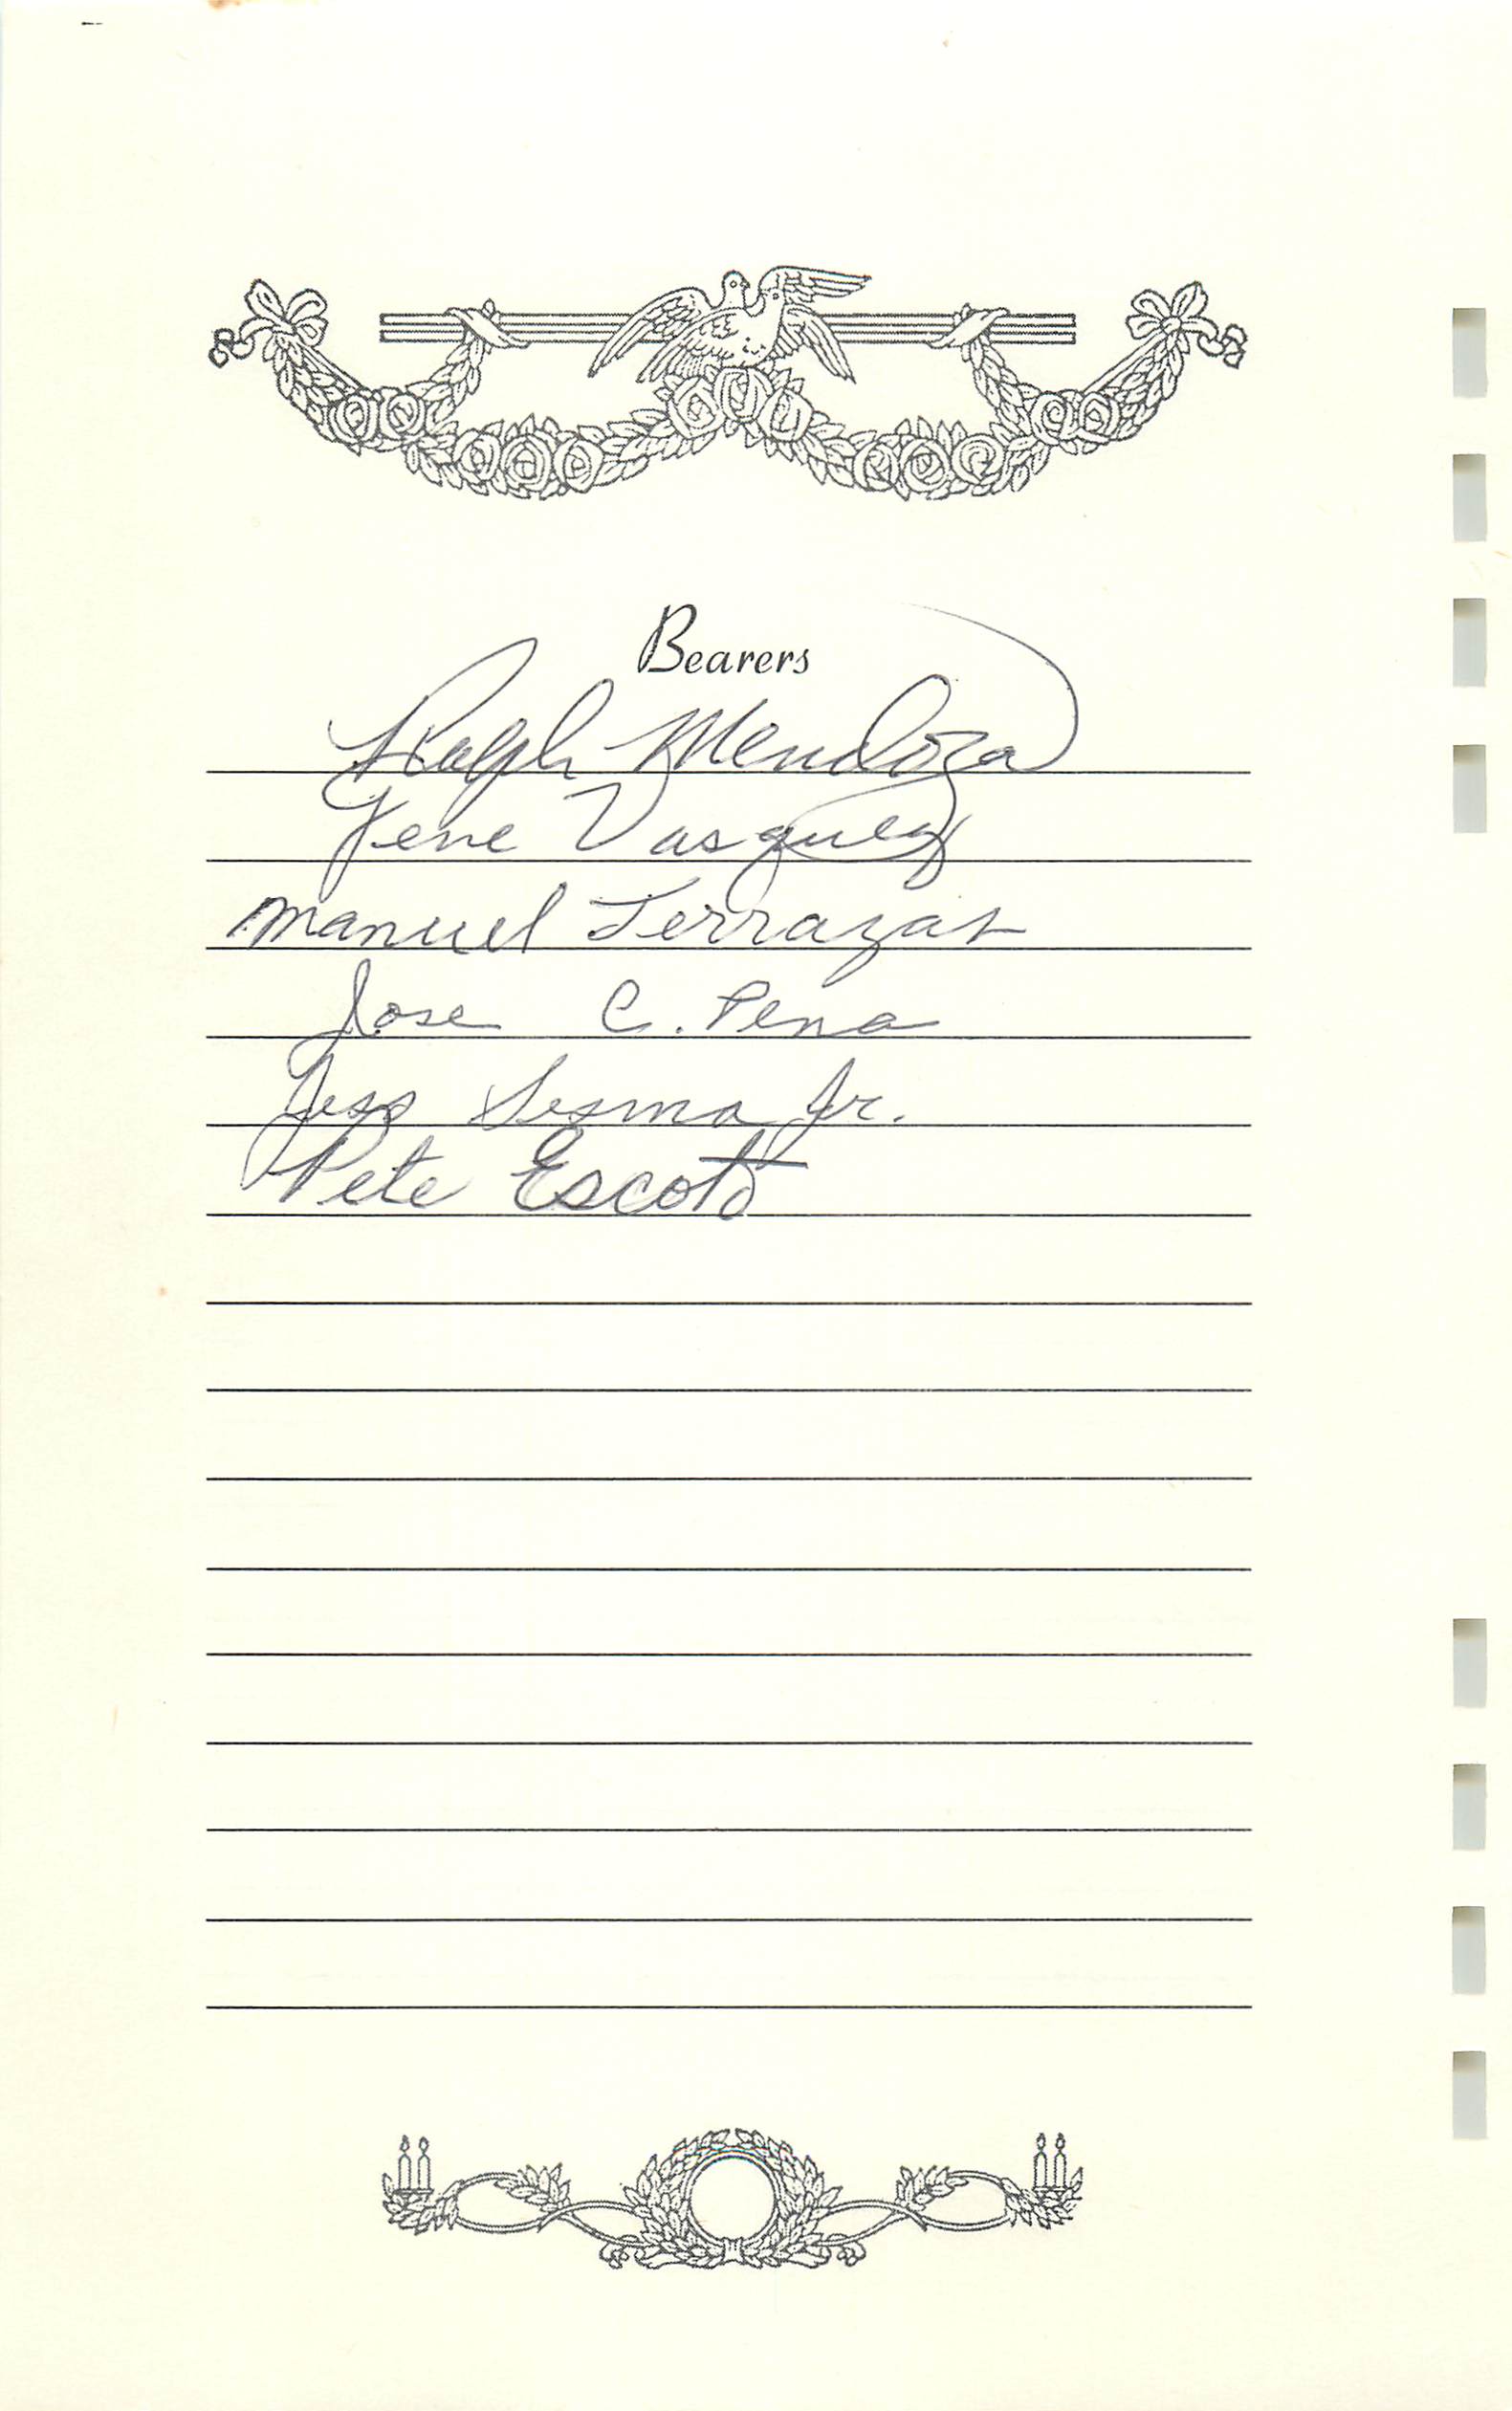 Bearers
Ralph Mendoza
Gene Vasquez
Manuel Terrazas
Jose C. Pena
Jess Sesma Jr.
Pete Escoto